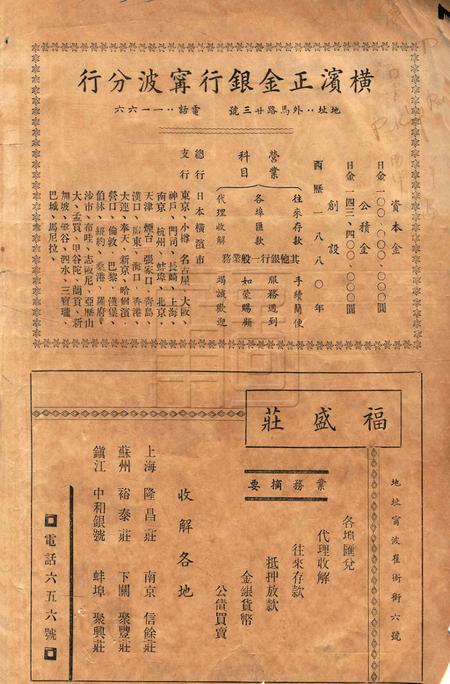 橫濱正金銀行甯波分行
地址：外馬路廿三號　電話：一一六六
資本金
日金一〇〇、〇〇〇、〇〇〇圓
公積金
日金一四三、四五〇、〇〇〇圓
創設
西歷一八八〇年
營業科目
往來存款　手續簡便
各埠匯款　服務週到
代理收解　如蒙賜顧
其他銀行一般業務　竭誠歡迎
總行　日本橫濱市
支行　東京、小樽、名古屋、大阪
神戶、門司、長崎、上海、
南京、杭州、蚌埠、北京、
天津、煙台、張家口、青島
漢口、廣東、海口、香港、
大連、奉天、新京、哈爾濱
營口、倫敦、巴黎、漢堡
伯林、紐約、桑港、羅府、
沙市、布哇、志脫尼、亞歷山
大、孟買、甲谷陀、蘭貢、新
加坡、盤谷、泗水、三寶瓏、
巴城、馬尼拉、
福盛莊
地址甯波崔衙街六號
業務摘要
各埠匯兌
代理收解
往來存款
抵押放款
金銀貨幣
公債買賣
收解各地
上海　隆昌莊　南京　信餘莊
蘇州　裕泰莊　下關　聚豐莊
鎭江　中和銀號　蚌埠　聚興莊
電話六五六號